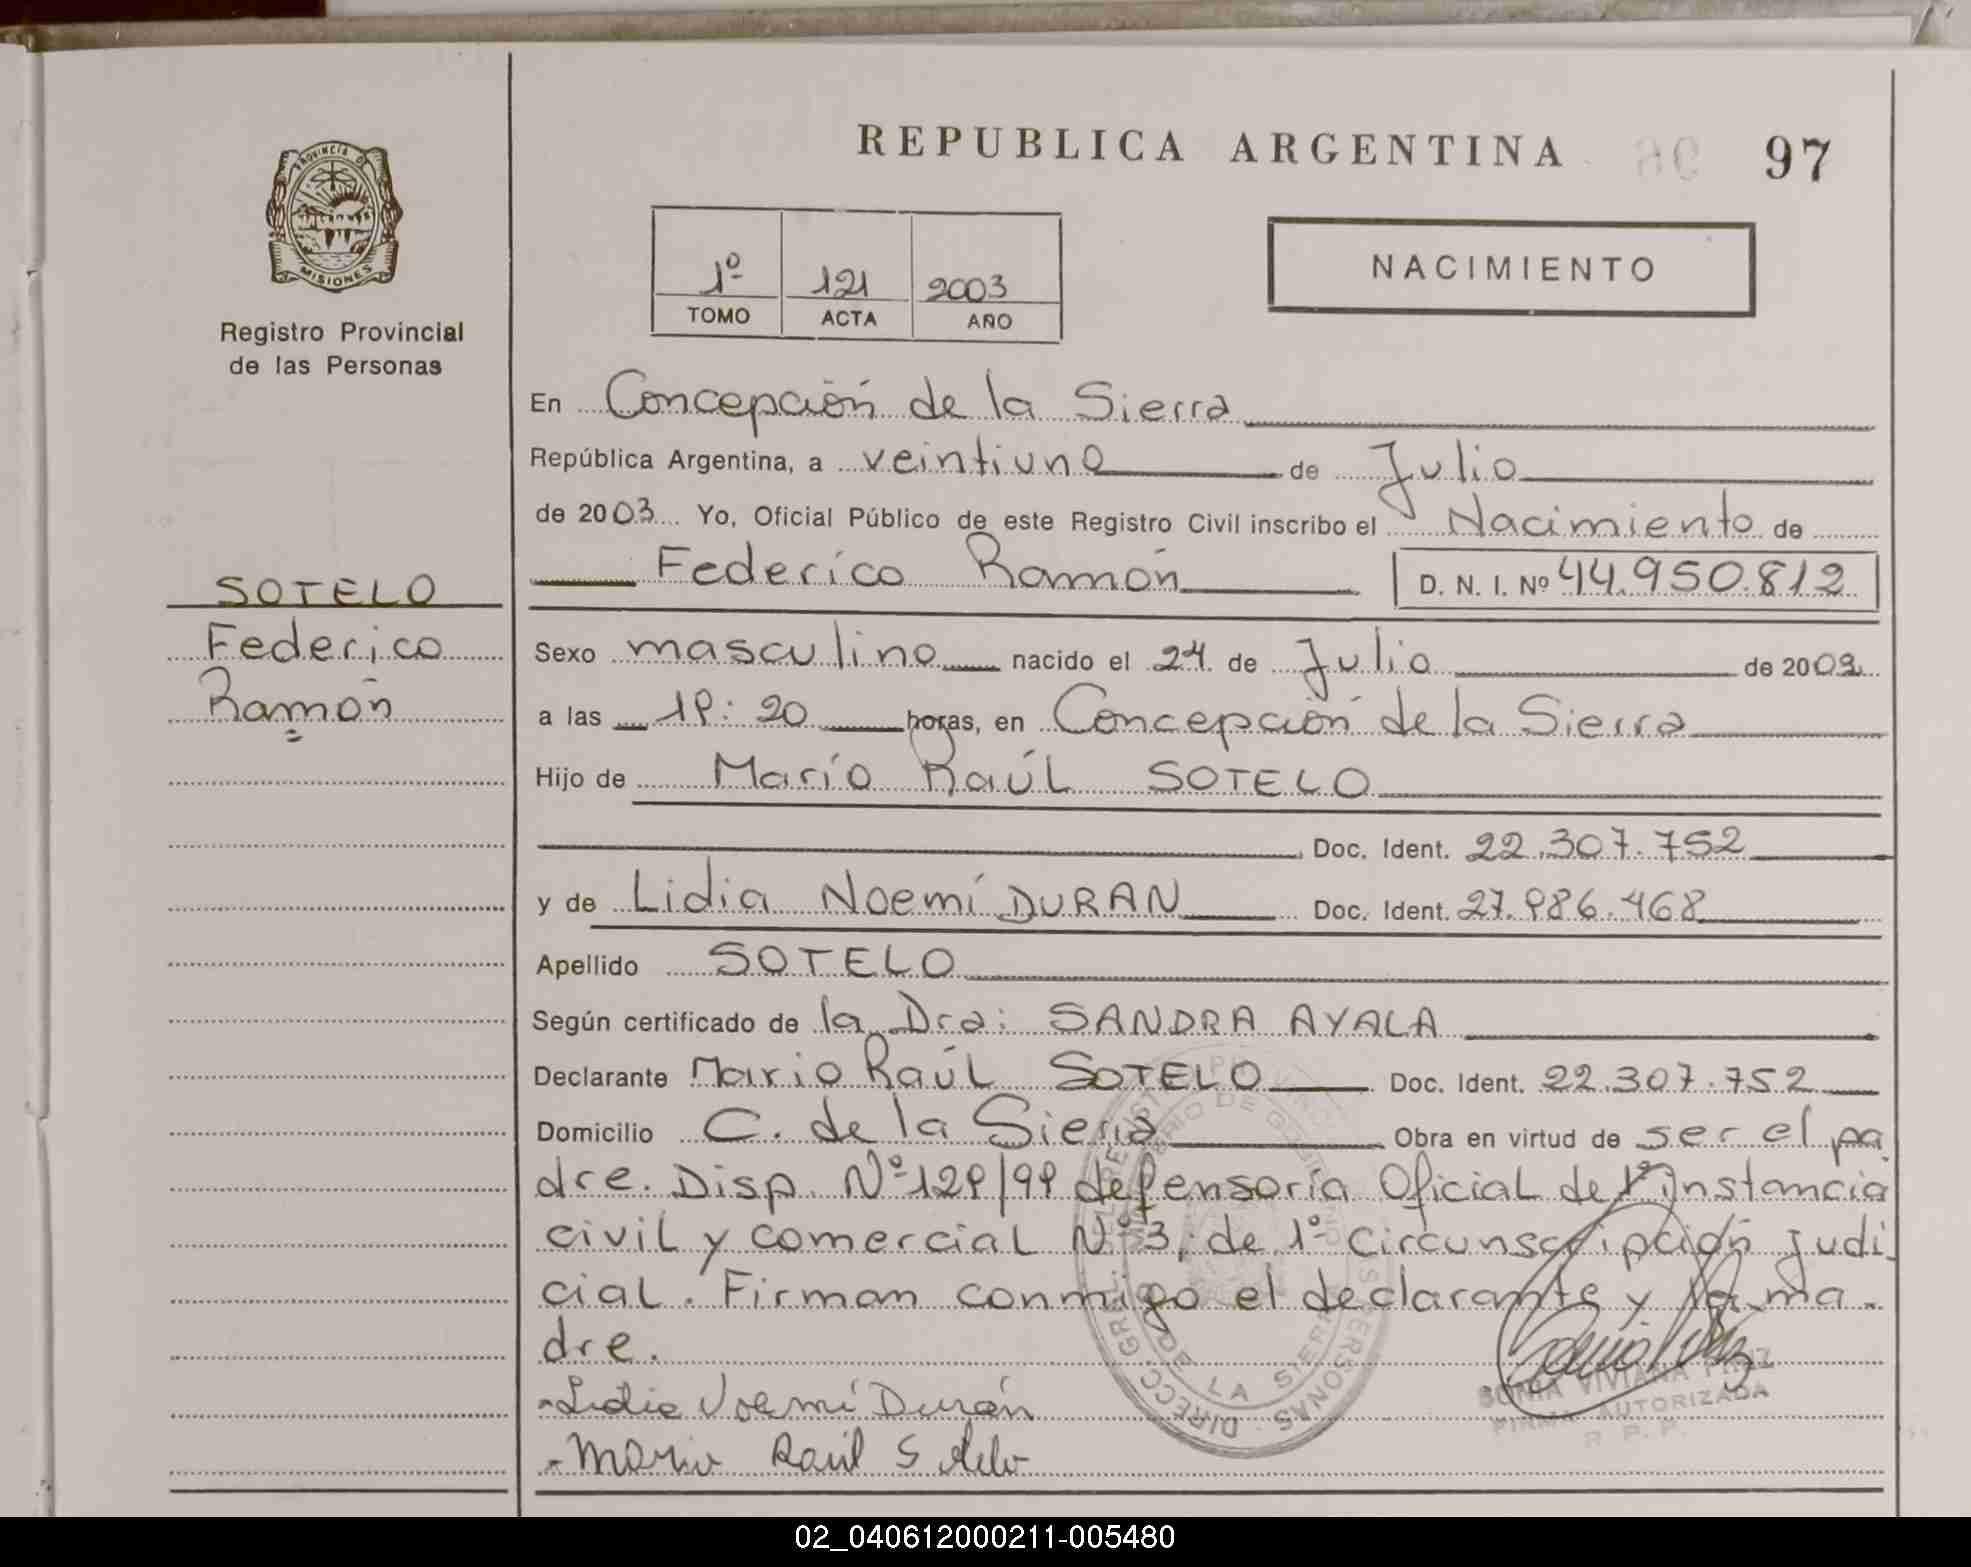 REPUBLICA ARGENTINA 97
PROVINCIA DE
MISIONES
Registro Provincial
de las Personas
1º 121 2003
TOMO ACTA AÑO
NACIMIENTO
En Concepción de la Sierra
República Argentina, a veintiuno de Julio
de 2003 Yo, Oficial Público de este Registro Civil inscribo el Nacimiento de
Federico Ramón D. N. I. Nº 44.950.812
SOTELO
Federico
Ramón
Sexo masculino nacido el 24 de Julio de 200
a las 19:20 horas, en Concepción de la Sierra
Hijo de Mario Raúl SOTELO
Doc. Ident. 22.307.752
y de Lidia Noemí DURAN Doc. Ident. 27.986.468
Apellido SOTELO
Según certificado de la Dra: SANDRA AYALA
Declarante Mario Raúl SOTELO Doc. Ident. 22.307.752
Domicilio C. de la Sierra Obra en virtud de ser el pa
dre. Disp. Nº 129/99 defensoría Oficial de 1º Instancia
civil y comercial Nº 3, de 1º circunscripción judi
cial. Firman conmigo el declarante y la ma-
dre.
- Lidia Noemí Durán
- Mario Raúl Sotelo
SONIA VIVIANA
FIRMA AUTORIZADA
R. P. P.
DIRECC. GRAL. PERSONAS
DE LA SIERRA
02_040612000211-005480